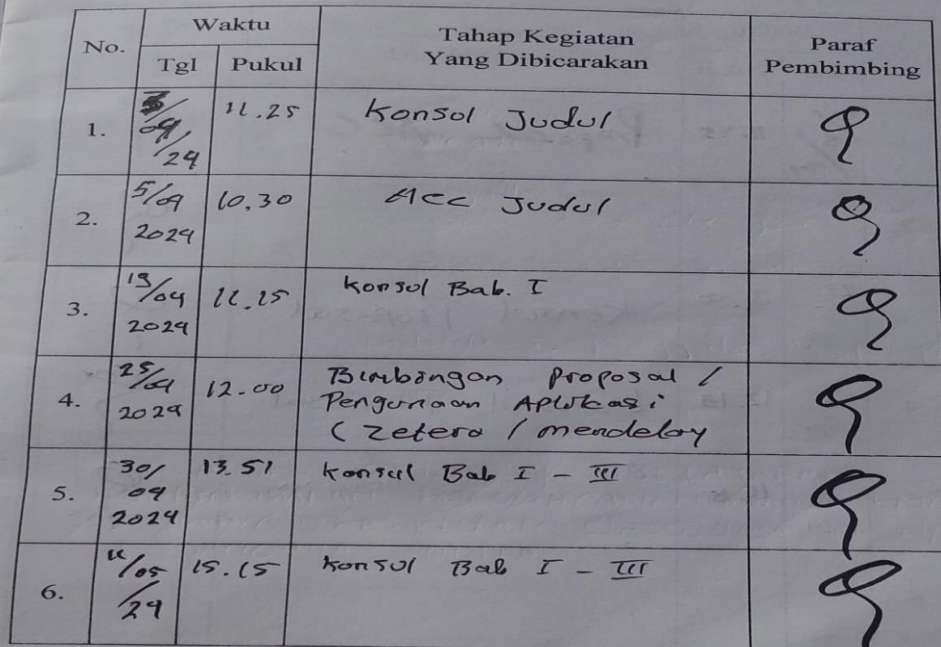 No. Waktu Tahap Kegiatan Yang Dibicarakan Paraf Pembimbing
Tgl Pukul
1. 3/04/24 11.25 Konsol Judul
2. 5/04 2024 10.30 Acc Judul
3. 19/04 2024 11.15 Konsol Bab. I
4. 25/04 2024 12.00 Bimbingan Proposal /
Pengunaan Aplikasi
(Zetero / mendeley
5. 30/04 2024 13.51 Konsul Bab I - III
6. /05/24 15.15 Konsul Bab I - III